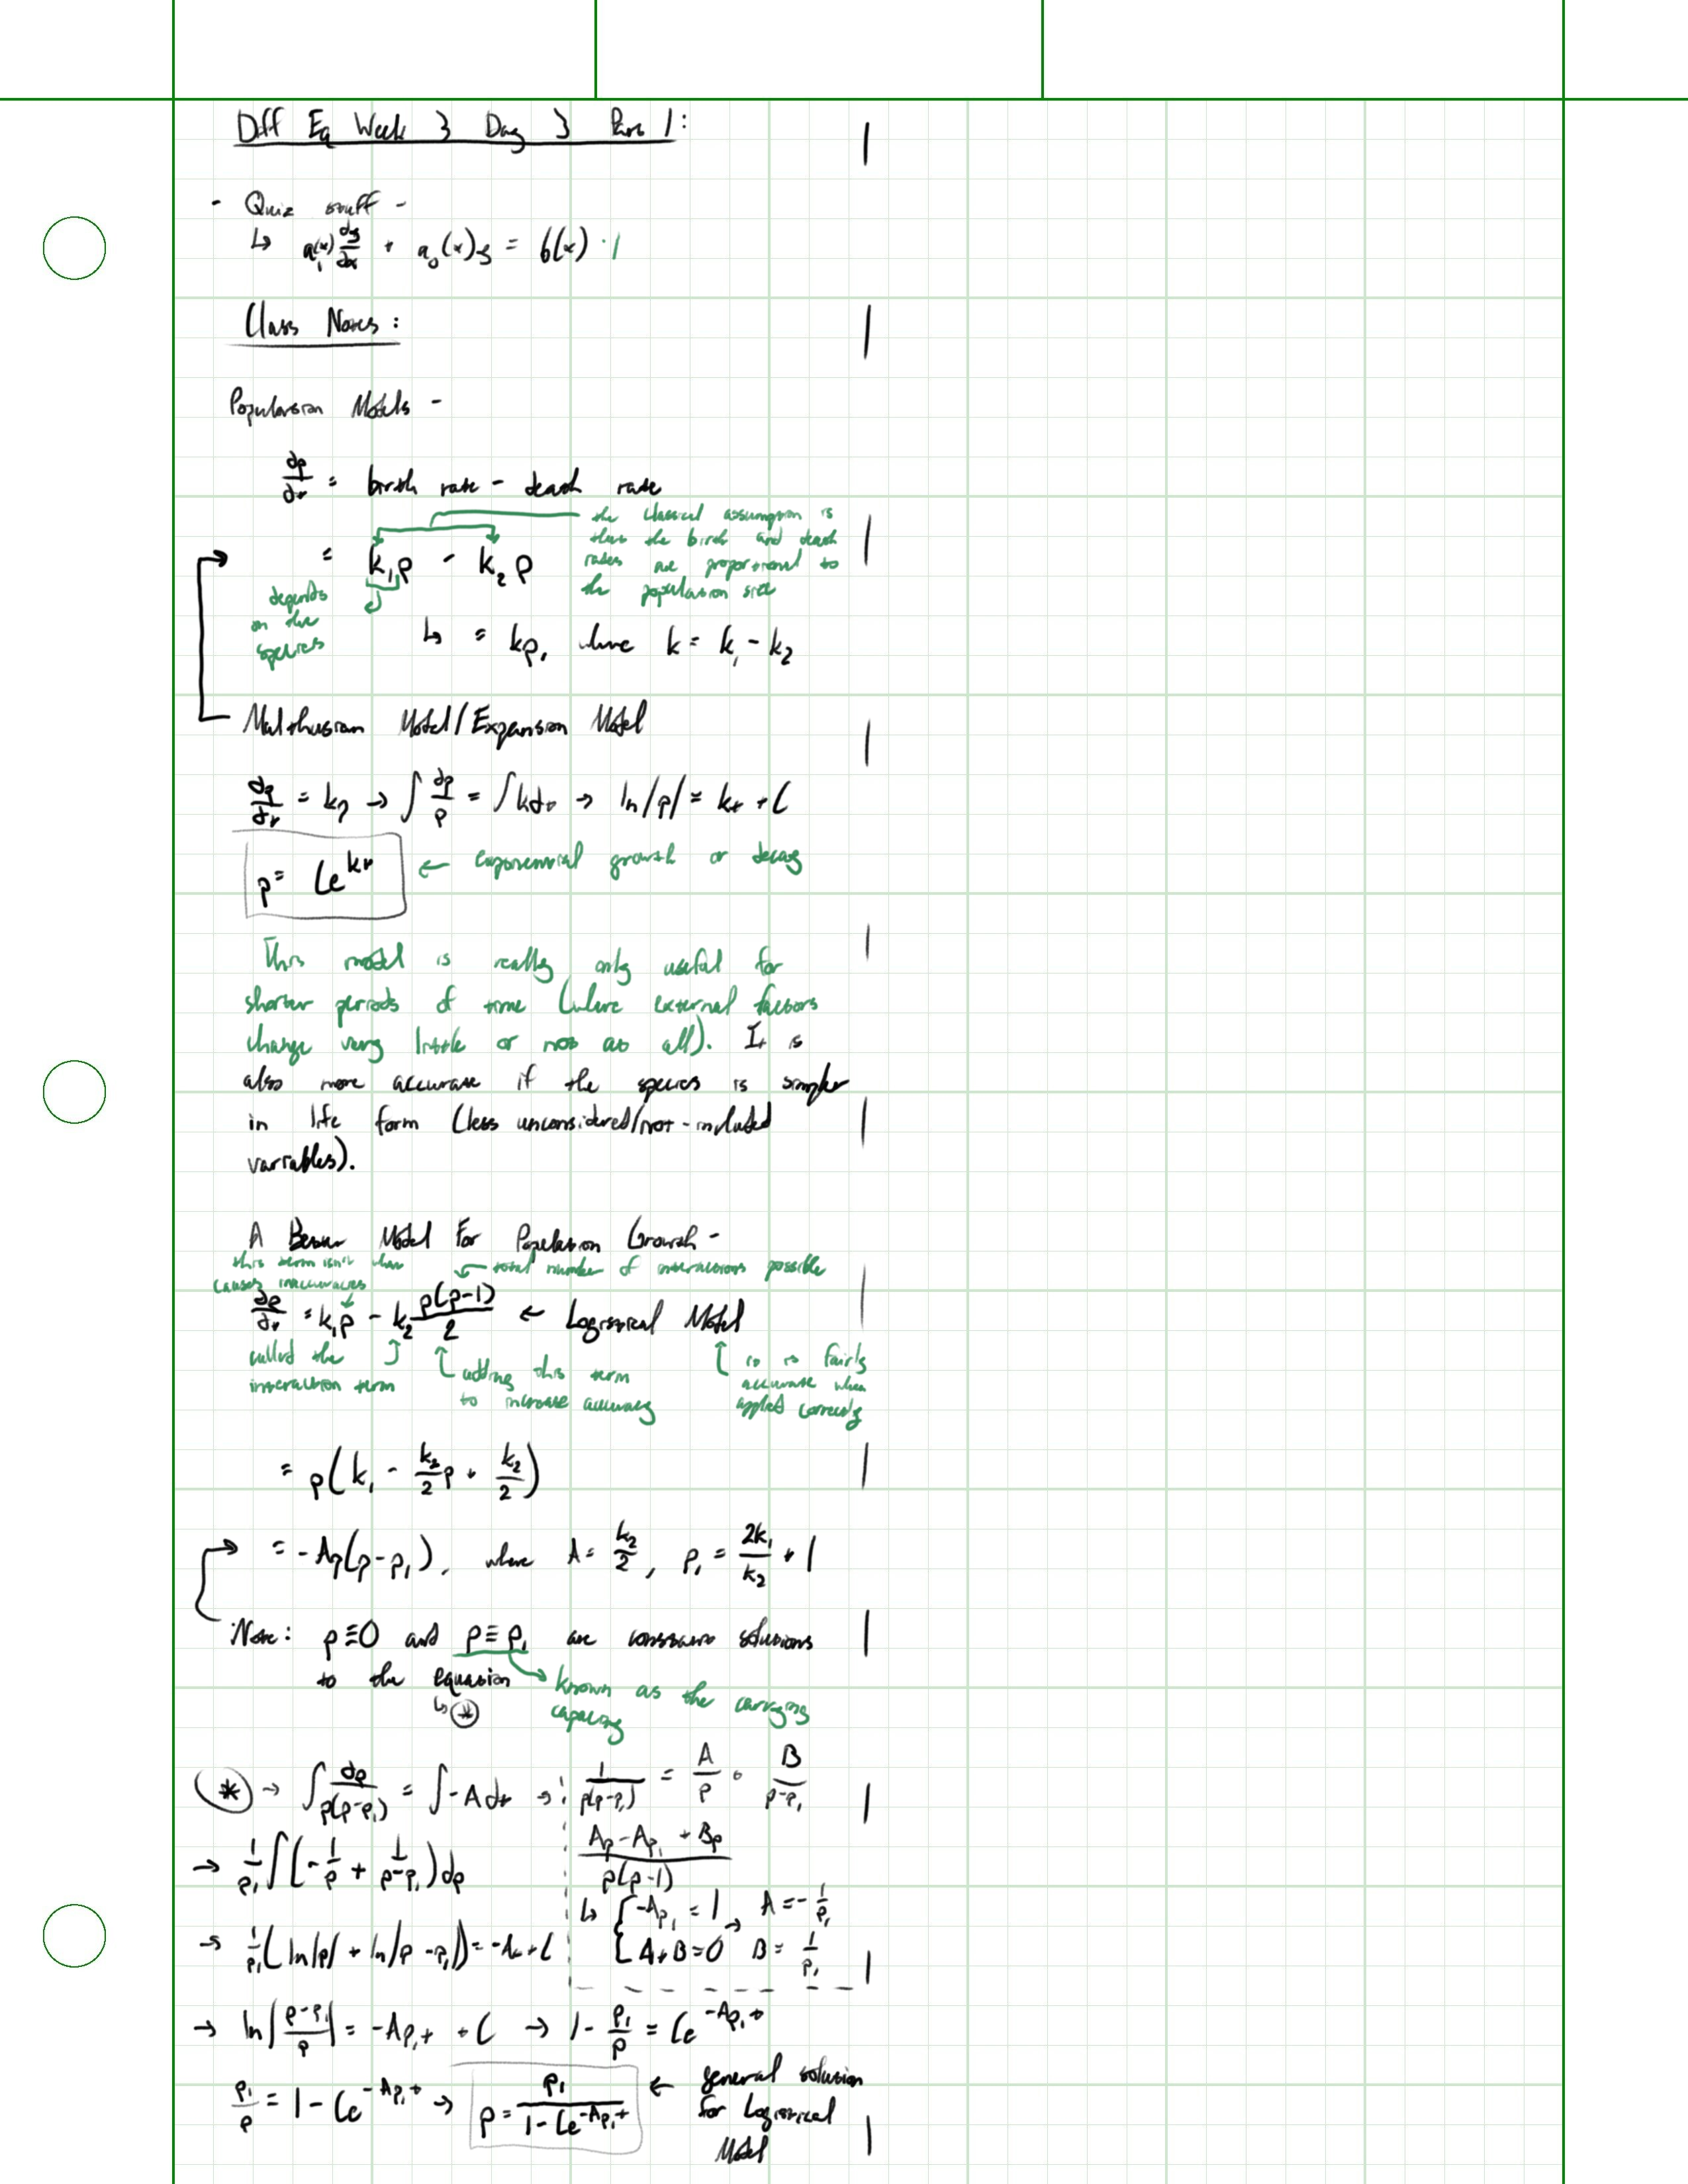 Diff Eq Week 3 Day 3 Part 1:
- Quiz stuff -
↳ a₁(x) dy/dx + a₀(x)y = b(x) · 1
Class Notes:
Population Models -
dp/dt = birth rate - death rate
the classical assumption is
that the birth and death
rates are proportional to
the population size
= k₁p - k₂p
depends
on the
species
↳ = kp, where k = k₁ - k₂
Malthusian Model/Expansion Model
dp/dt = kp → ∫ dp/p = ∫ k dt → ln|p| = kt + C
p = Ce^kt ← exponential growth or decay
This model is really only useful for
shorter periods of time (where external factors
change very little or not at all). It is
also more accurate if the species is simpler
in life form (less unconsidered/not-included
variables).
A Better Model For Population Growth -
this term isn't what
causes inaccuracies
← total number of interactions possible
dp/dt = k₁p - k₂ p(p-1)/2 ← Logistical Model
called the
interaction term
adding this term
to increase accuracy
it is fairly
accurate when
applied correctly
= p(k₁ - k₂/2 p + k₂/2)
= -Ap(p-p₁), where A = k₂/2, p₁ = 2k₁/k₂ + 1
Note: p≡0 and p≡p₁ are constant solutions
to the equation
↳ *
known as the carrying
capacity
* → ∫ dp/p(p-p₁) = ∫ -A dt →
1/p(p-p₁) = A/p + B/p-p₁
Ap - Ap₁ + Bp / p(p-1)
↳ { -Ap₁ = 1 → A = -1/p₁
A+B=0 B = 1/p₁
→ 1/p₁ ∫(-1/p + 1/p-p₁) dp
→ 1/p₁ (ln|p| + ln|p-p₁|) = -At + C
→ ln|p-p₁/p| = -Ap₁t + C → 1 - p₁/p = Ce^-Ap₁t
p₁/p = 1 - Ce^-Ap₁t → p = p₁/1 - Ce^-Ap₁t
← general solution
for Logistical
Model